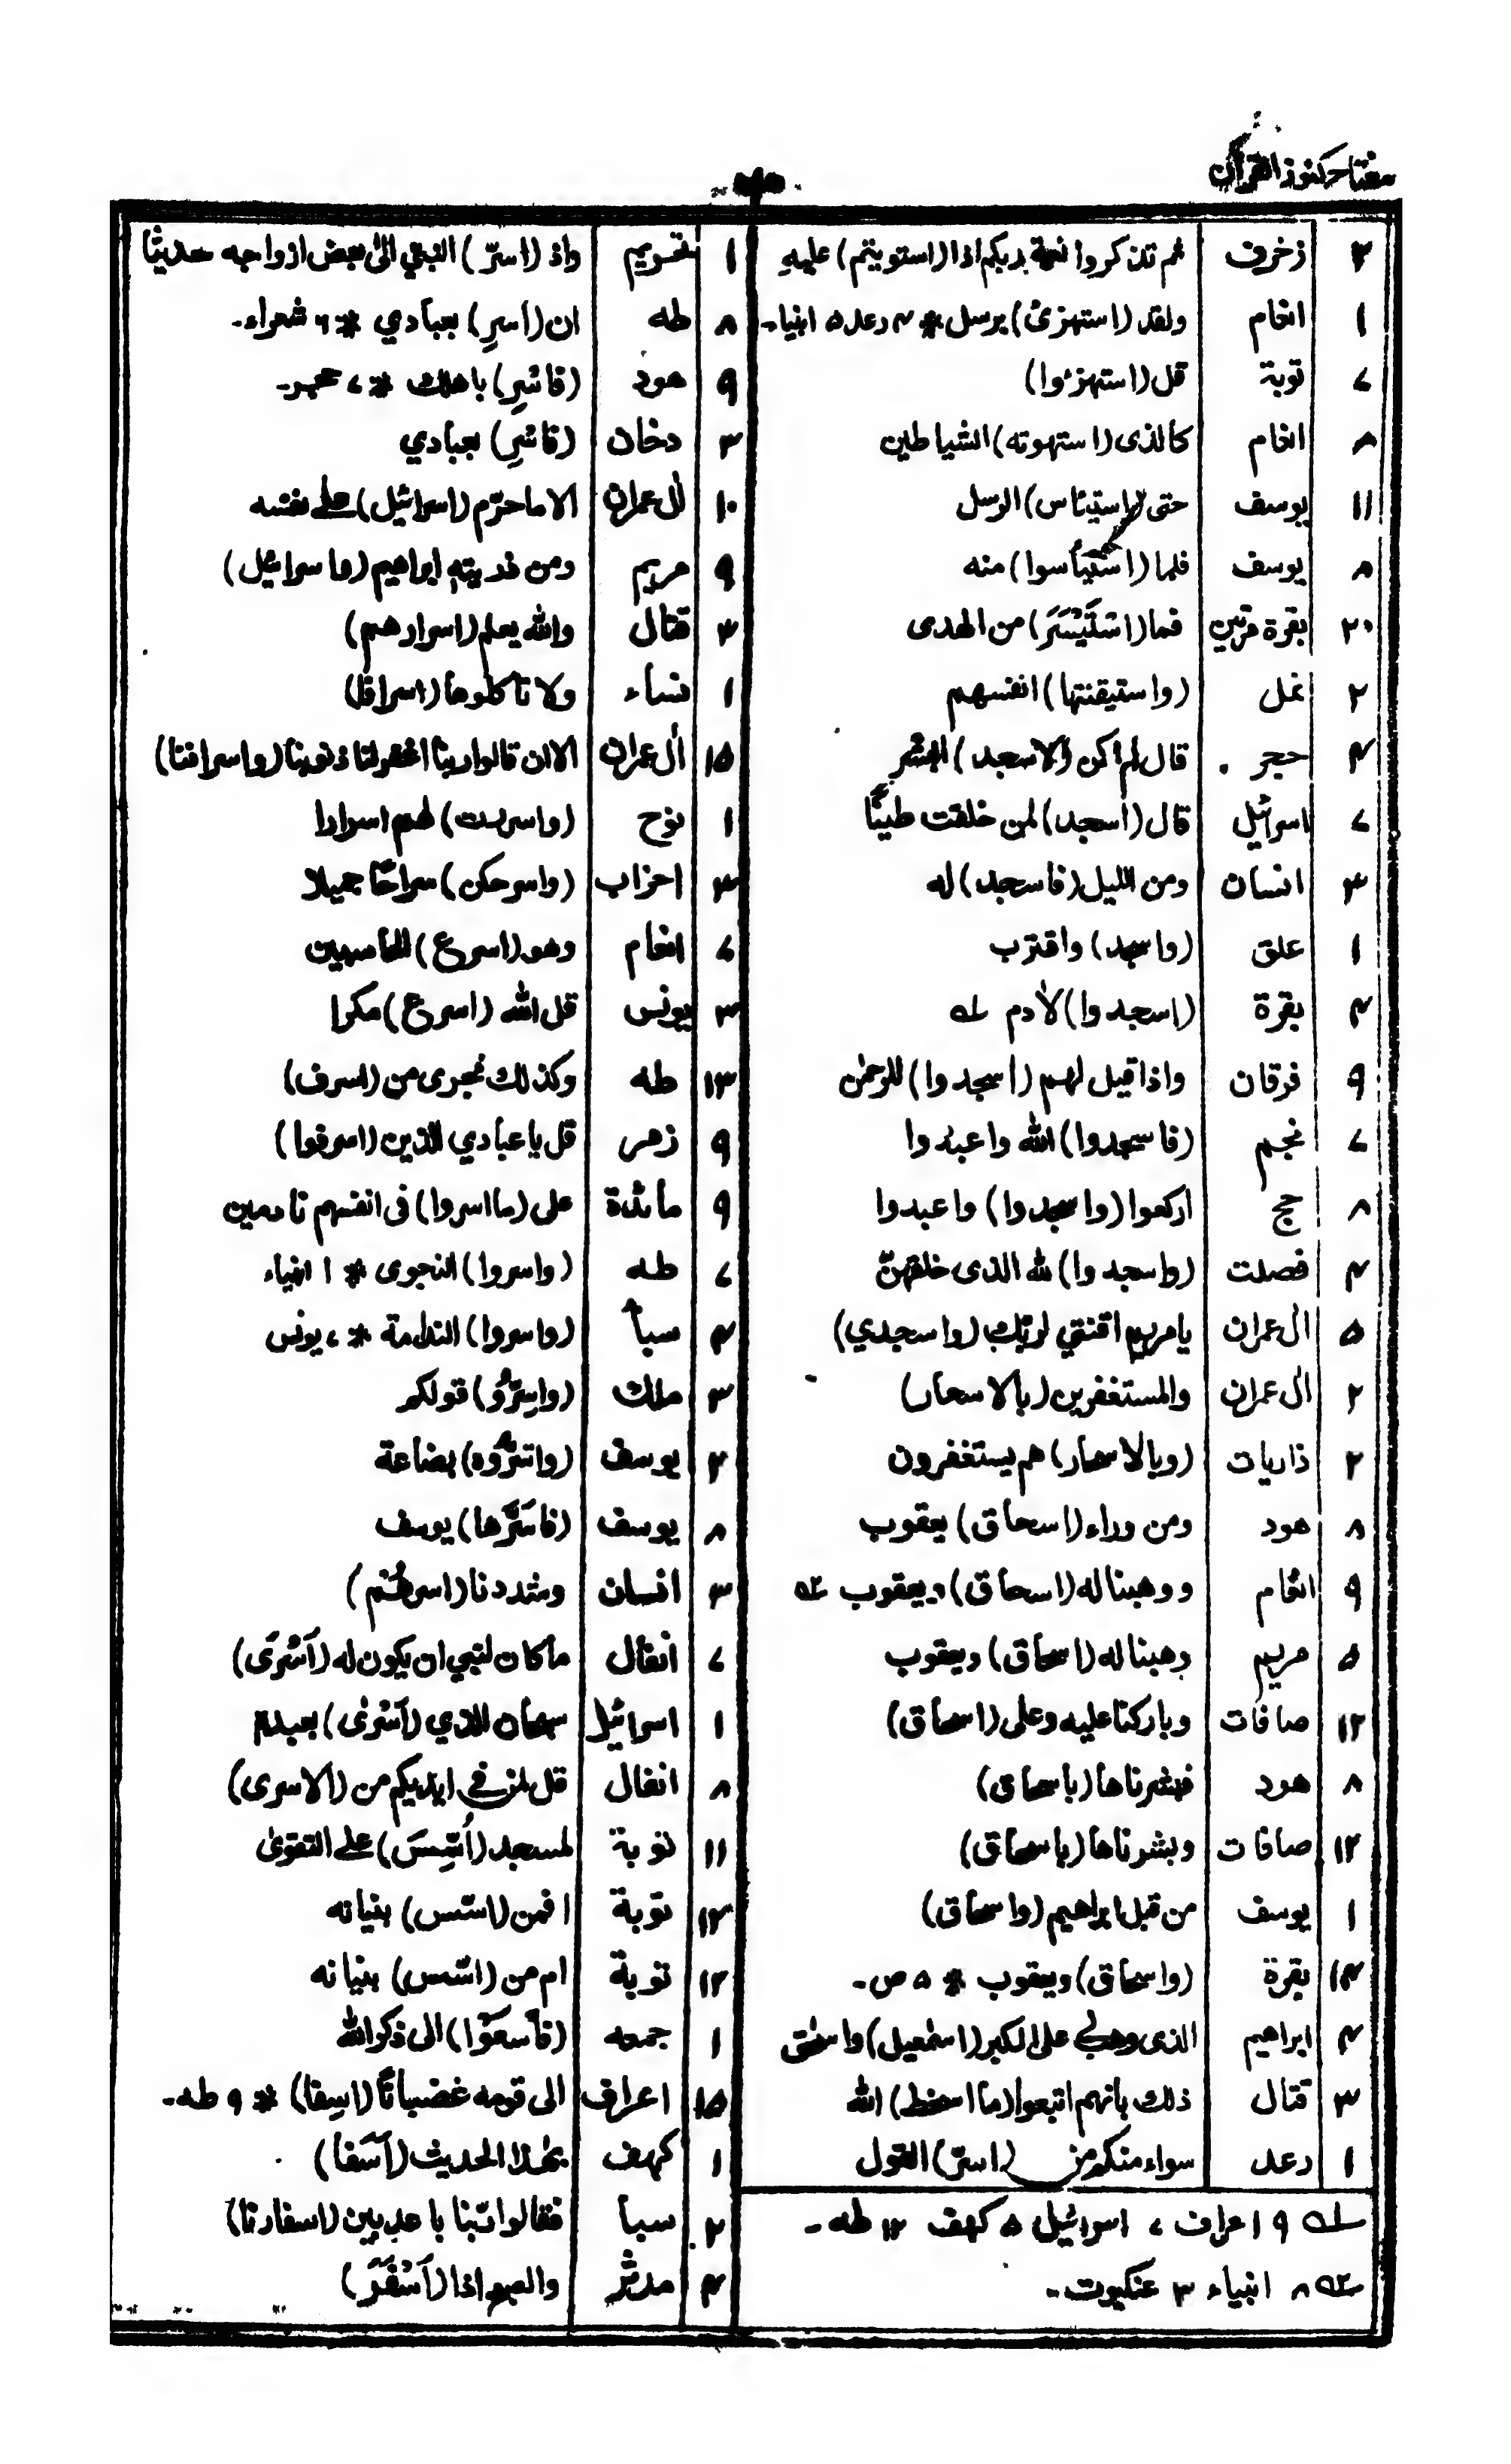 مفتاح کنوز القرآن
۲ زخرف ثم تذکروا نعمة ربکم اذا (استویتم) علیه
۱ انعام ولقد (استهزئ) برسل * ۴ رعد ۵ انبیاء-
۷ توبة قل (استهزءوا)
۸ انعام کالذی (استهوته) الشیاطین
۱۱ یوسف حتی (استیئاس) الرسل
۸ یوسف فلما (اسْتَیْأسوا) منه
۲۰ بقرة مرتین فما (اسْتَیْسَرَ) من الهدی
۲ نمل (واستیقنتها) انفسهم
۳ حجر قال لم اکن (لاسجد) لبشر
۷ اسرائیل قال (أاسجد) لمن خلقت طینًا
۳ انسان ومن اللیل (فاسجد) له
۱ علق (واسجد) واقترب
۴ بقرة (اسجدوا) لاٰدم ؎۱
۹ فرقان واذا قیل لهم (اسجدوا) للرحمٰن
۷ نجم (فاسجدوا) الله واعبدوا
۸ حج ارکعوا (واسجدوا) واعبدوا
۴ فصلت (واسجدوا) لله الذی خلقهنّ
۵ اٰل عمران یا مریم اقنتي لربّك (واسجدي)
۲ اٰل عمران والمستغفرین (بالاسحار)
۲ ذاریات (وبالاسحار) هم یستغفرون
۸ هود ومن وراء (اسحاق) یعقوب
۹ انعام ووهبنا له (اسحاق) ویعقوب ؎۲
۵ مریم وهبنا له (اسحاق) ویعقوب
۱۲ صافات وبارکنا علیه وعلی (اسحاق)
۸ هود فبشرناها (باسحاق)
۱۲ صافات وبشرناها (باسحاق)
۱ یوسف من قبل ابراهیم (واسحاق)
۱۴ بقرة (واسحاق) ویعقوب * ۵ ص-
۴ ابراهیم الذی وهب لي علی الکبر (اسمٰعیل) واسحٰق
۳ قتال ذلك بانهم اتبعوا (ما اسخط) الله
۱ رعد سواء منکم من (اسرّ) القول
؎۱ ۹ اعراف ۷ اسرائیل ۵ کهف ۱۲ طه-
؎۲ ۸ انبیاء ۳ عنکبوت-
۱ تحریم واذ (اسرّ) النبي الیٰ بعض ازواجه حدیثا
۸ طه ان (اسرِ) بعبادي * ۴ شعراء-
۹ هود (فاسْرِ) باهلك * ۷ حجر-
۳ دخان (فاسْرِ) بعبادي
۱۰ اٰل عمران الا ما حرّم (اسرائیل) علی نفسه
۹ مریم ومن ذریته ابراهیم (واسرائیل)
۳ قتال والله یعلم (اسرارهم)
۱ نساء ولا تاکلوها (اسرافا)
۱۵ اٰل عمران الا ان قالوا ربنا اغفر لنا ذنوبنا (واسرافنا)
۱ نوح (واسررت) لهم اسرارا
۴ احزاب (واسرحکن) سراحًا جمیلا
۷ انعام وهو (اسرع) الحاسبین
۳ یونس قل الله (اسرع) مکرا
۱۳ طه وکذلك نجزی من (اسرف)
۹ زمر قل یا عبادي الذین (اسرفوا)
۹ مائدة علی (ما اسروا) فی انفسهم نادمین
۷ طه (واسروا) النجوی * ۱ انبیاء
۴ سبأ (واسروا) الندامة * ۷ یونس
۳ ملك (واسِرُّو) قولکم
۲ یوسف (واسَرُّوه) بضاعة
۸ یوسف (فاسَرَّها) یوسف
۳ انسان وشددنا (اسرهُم)
۷ انفال ما کان لنبي ان یکون له (اَسْرَی)
۱ اسرائیل سبحان الذي (اَسْرٰی) بعبده
۸ انفال قل لمن في ایدیکم من (الاسری)
۱۱ توبة لمسجد (اُسِّسَ) علی التقوٰی
۱۲ توبة افمن (اسّس) بنیانه
۱۲ توبة ام من (اسّس) بنیانه
۱ جمعه (فاسعَوْا) الی ذکر الله
۱۵ اعراف الی قومه غضبانًا (اسِفا) * ۹ طه-
۱ کهف بهٰذا الحدیث (اَسَفا)
۲ سبا فقالوا ربّنا باعد بین (اسفارنا)
۴ مدثر والصبح اذا (اَسْفَرَ)